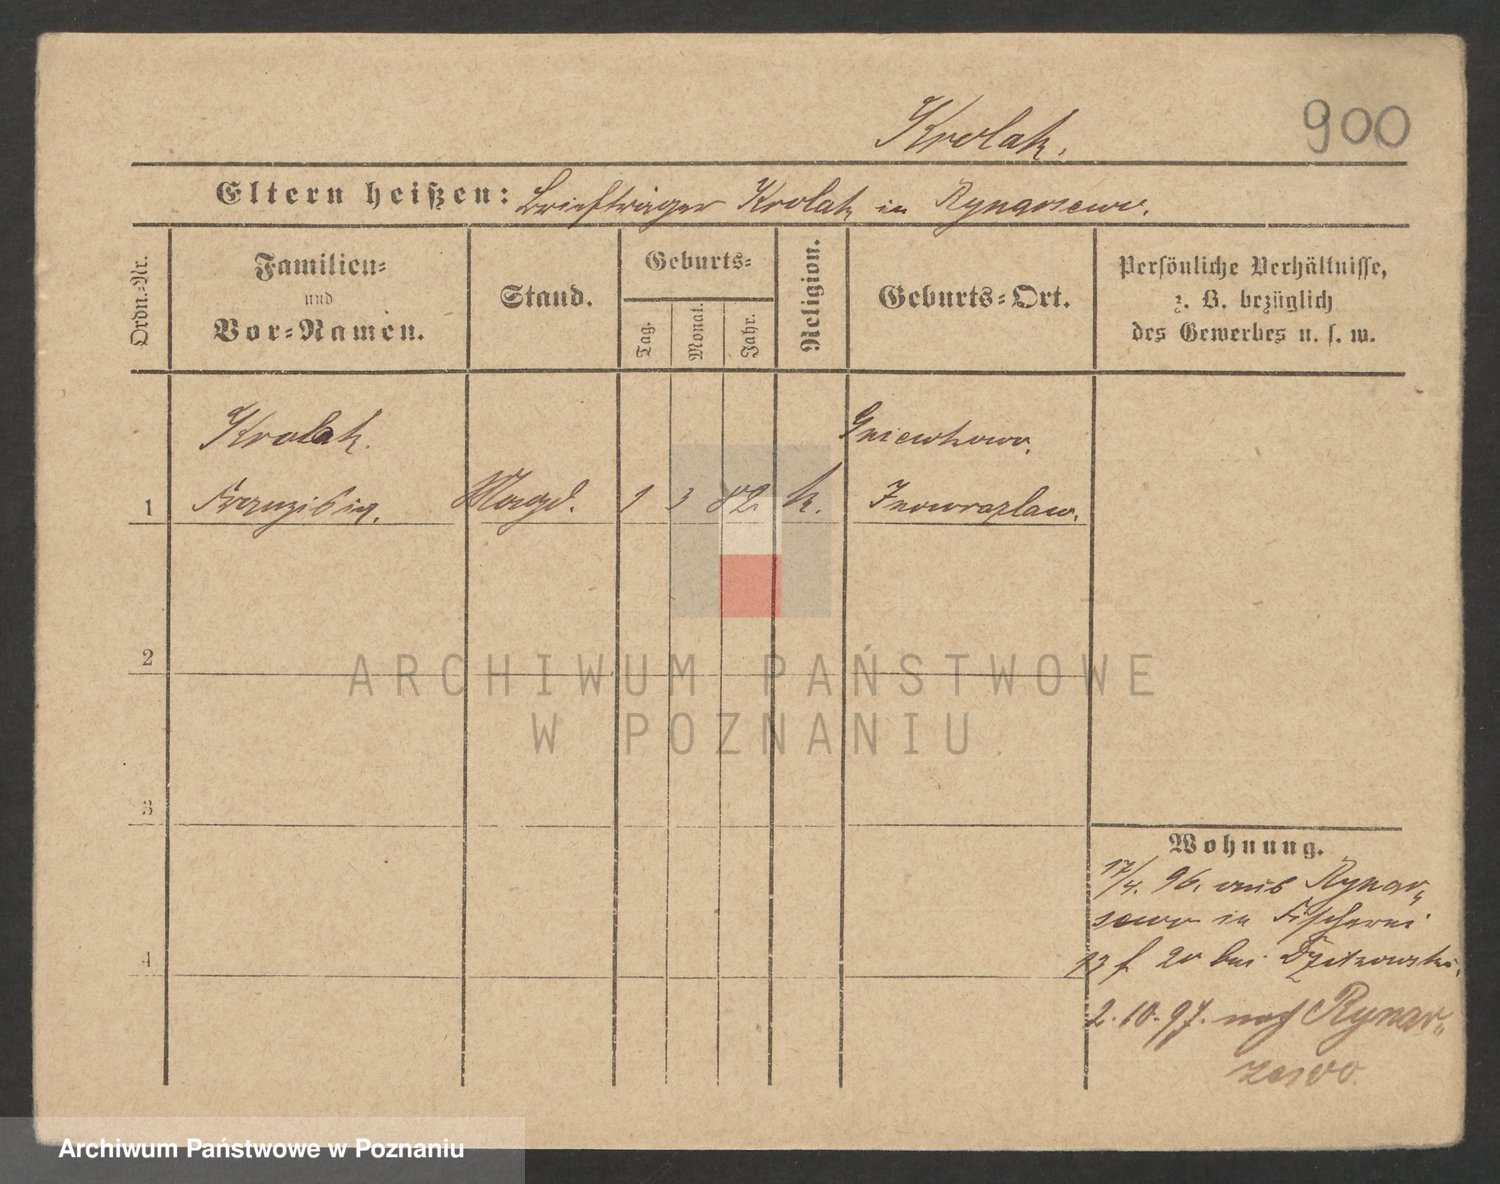 Krolak.
900
Eltern heißen: Briefträger Krolak in Rynarzewo.
Ordn.-Nr.
Familien-
und
Vor-Namen.
Stand.
Geburts-
Tag.
Monat.
Jahr.
Religion.
Geburts-Ort.
Persönliche Verhältnisse,
z. B. bezüglich
des Gewerbes u. s. w.
Krolak.
Gniewkowo,
1 Franziska. Magd. 1 3 82 k. Inowrazlaw.
2
3
4
Wohnung.
17/4. 96. aus Rynar-
sewo in Fischerei
20 bei
2. 10. 97. nach Rynar-
zewo.
ARCHIWUM PAŃSTWOWE
W POZNANIU
Archiwum Państwowe w Poznaniu